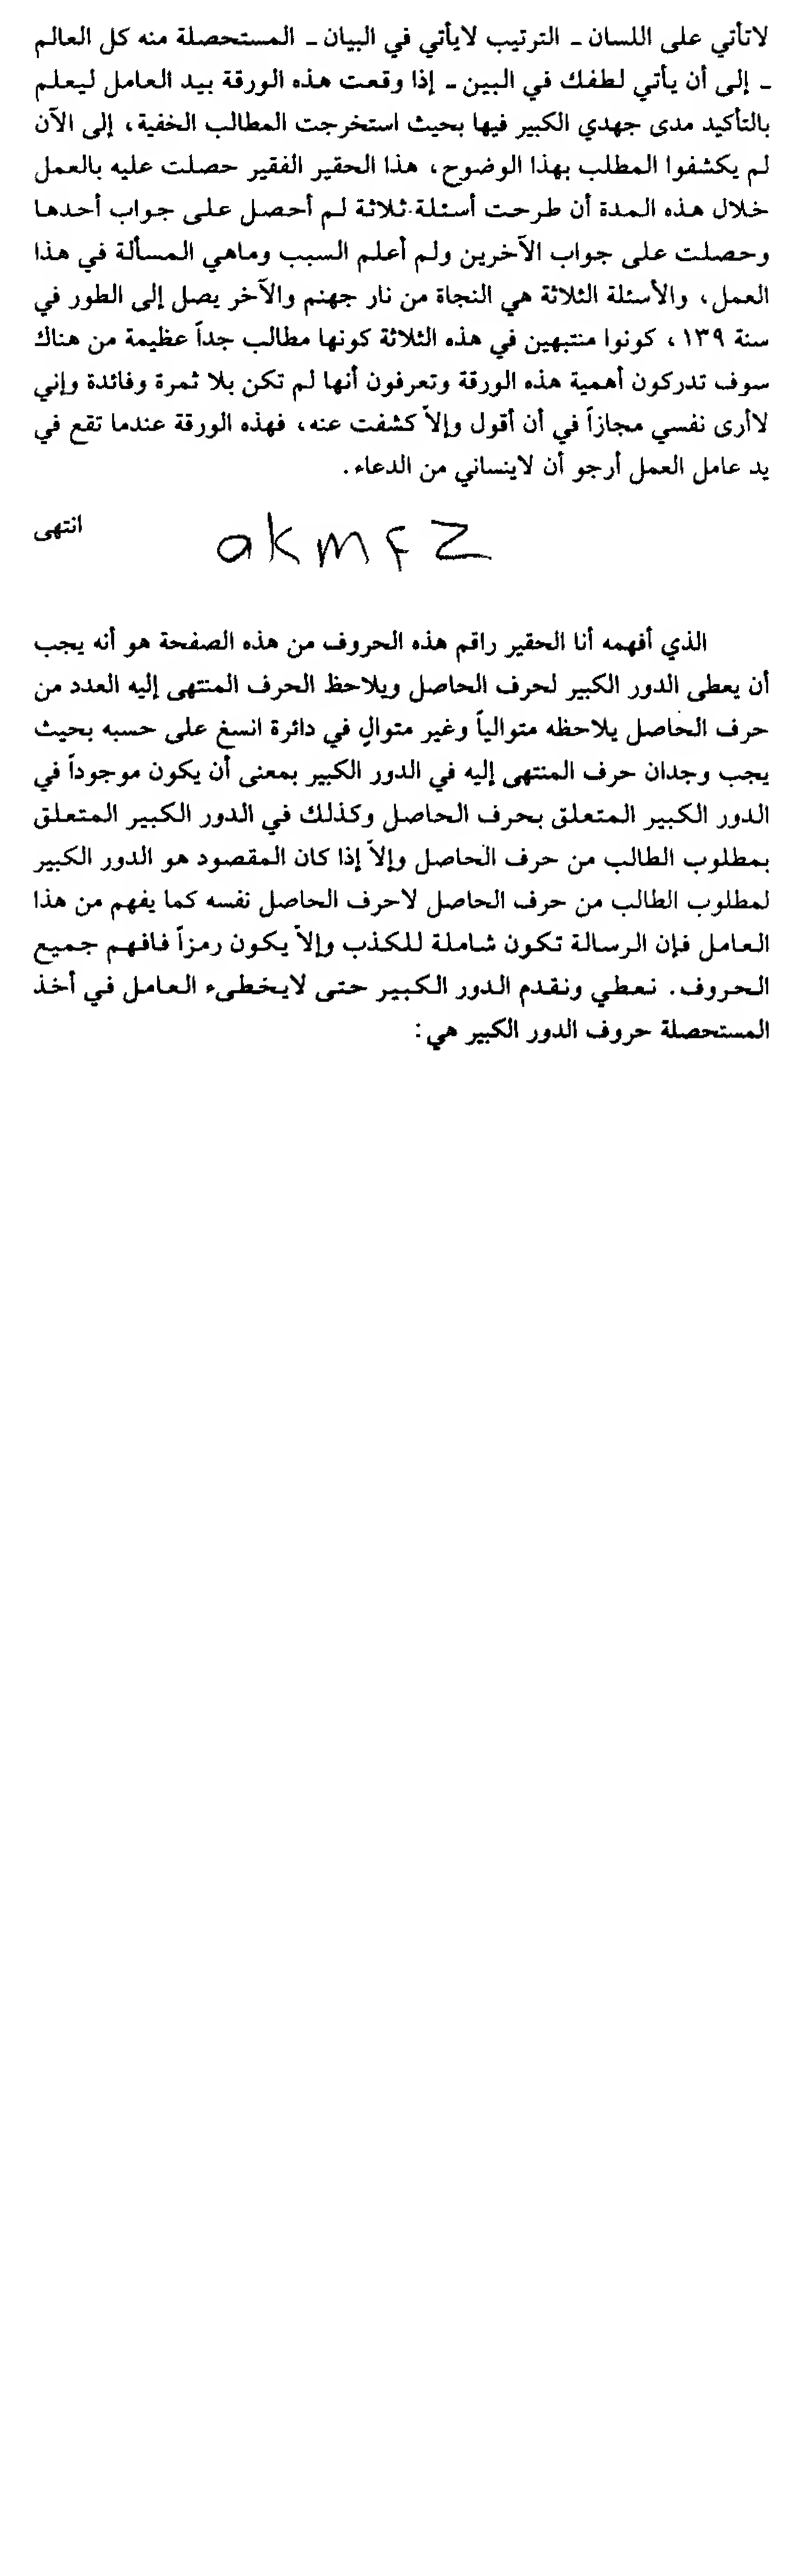 لاتأتي على اللسان ـ الترتيب لايأتي في البيان ـ المستحصلة منه كل العالم
ـ إلى أن يأتي لطفك في البين ـ إذا وقعت هذه الورقة بيد العامل ليعلم
بالتأكيد مدى جهدي الكبير فيها بحيث استخرجت المطالب الخفية، إلى الآن
لم يكشفوا المطلب بهذا الوضوح، هذا الحقير الفقير حصلت عليه بالعمل
خلال هذه المدة أن طرحت أسئلة ثلاثة لم أحصل على جواب أحدها
وحصلت على جواب الآخرين ولم أعلم السبب وماهي المسألة في هذا
العمل، والأسئلة الثلاثة هي النجاة من نار جهنم والآخر يصل إلى الطور في
سنة ١٣٩، كونوا منتبهين في هذه الثلاثة كونها مطالب جداً عظيمة من هناك
سوف تدركون أهمية هذه الورقة وتعرفون أنها لم تكن بلا ثمرة وفائدة وإني
لاأرى نفسي مجازاً في أن أقول وإلاّ كشفت عنه، فهذه الورقة عندما تقع في
يد عامل العمل أرجو أن لاينساني من الدعاء.
انتهى
akmfz
الذي أفهمه أنا الحقير راقم هذه الحروف من هذه الصفحة هو أنه يجب
أن يعطى الدور الكبير لحرف الحاصل ويلاحظ الحرف المنتهى إليه العدد من
حرف الحاصل يلاحظه متوالياً وغير متوالٍ في دائرة انسغ على حسبه بحيث
يجب وجدان حرف المنتهى إليه في الدور الكبير بمعنى أن يكون موجوداً في
الدور الكبير المتعلق بحرف الحاصل وكذلك في الدور الكبير المتعلق
بمطلوب الطالب من حرف الحاصل وإلاّ إذا كان المقصود هو الدور الكبير
لمطلوب الطالب من حرف الحاصل لاحرف الحاصل نفسه كما يفهم من هذا
العامل فإن الرسالة تكون شاملة للكذب وإلاّ يكون رمزاً فافهم جميع
الحروف. نعطي ونقدم الدور الكبير حتى لايخطىء العامل في أخذ
المستحصلة حروف الدور الكبير هي: